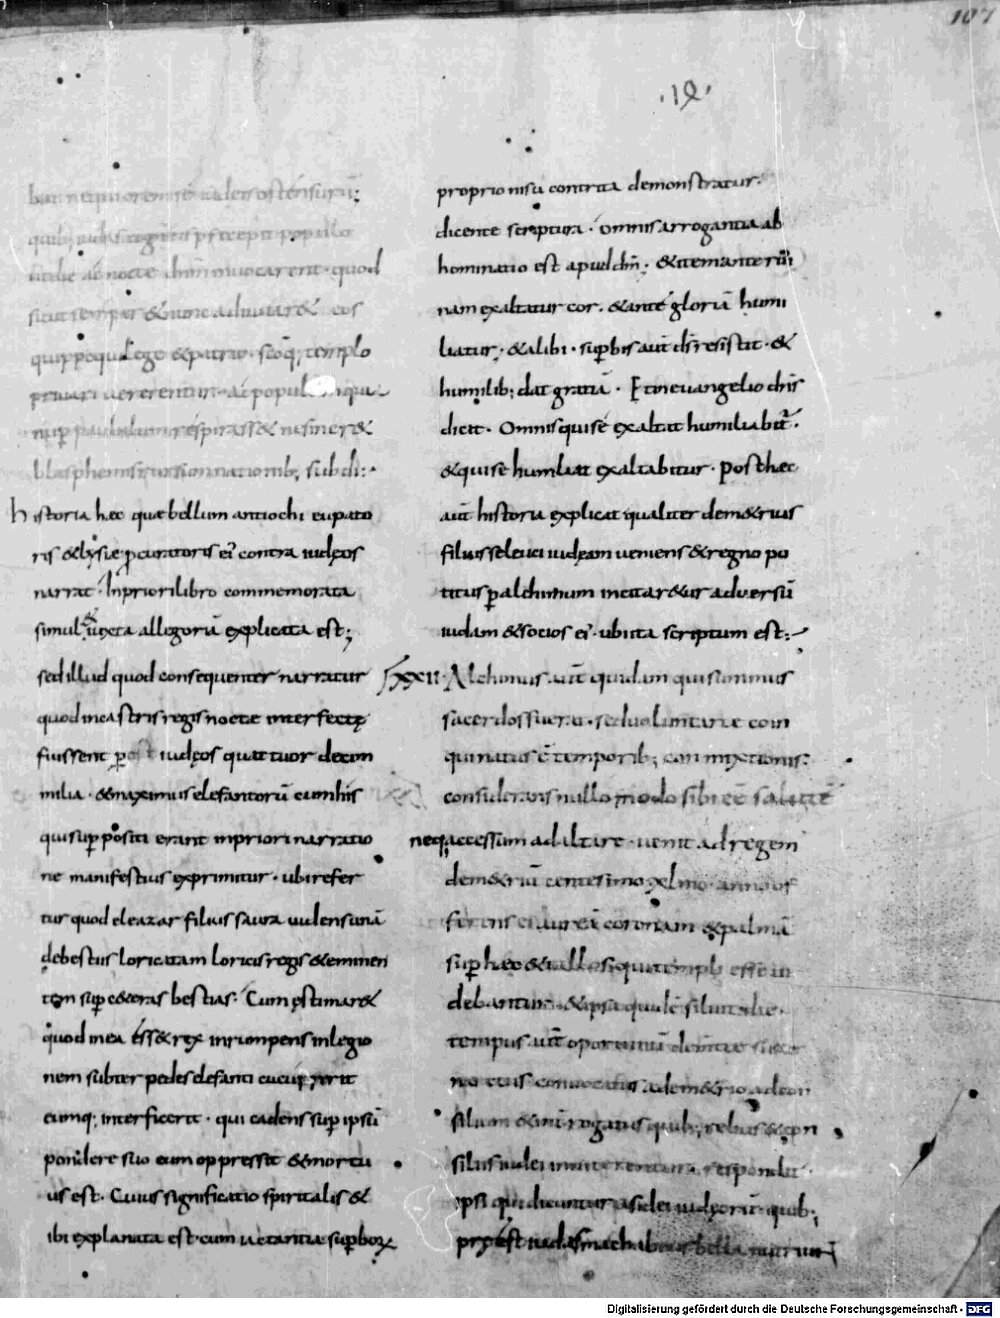 107
·19·
quod
sicut semper & nunc adiuuar& eos
quippe qui lege & patria · scōq; templo
priuari uererentur · ac populum qui
nup paululum respirass& n sineret
blasphemis rursum nationib; subdi:·
historia hęc quę bellum antiochi eupato
ris & lysię pcuratoris ei' contra iudęos
narrat · In priori libro commemorata
simul & iuxta allegoriā explicata est;
sed illud quod consequenter narratur
quod in castris regis nocte interfectę
fuissent p iudęos quattuor decim
milia · & maximus elefantorū cum his
qui sup positi erant in priori narratio
ne manifestius exprimitur · ubi refer
tur quod eleazar filius saura uidens unā
de bestiis loricatam loricis regis & eminen
tem sup ceteras bestias · Cum ęstimar&
quod in ea ess& rex inrumpens in legio
nem subter pedes elefanti
eumq; interficerit · qui cadens sup ipsū
pondere suo eum oppressit & mortu
us est · Cuius significatio spiritalis &
ibi explanata est · cum iactantia supborꝝ
proprio nisu contrita demonstratur·
dicente scriptura · omnis arrogantia ab
hominatio est apud dm̄; & item ante rui
nam exaltatur cor · & ante gloriā humi
liatur; & alibi · supbis aut ds resistit · &
humilib; dat gratiā · Et in euangelio dn̄s
dicit · Omnis qui se exaltat humiliabitr̄·
& qui se humiliat exaltabitur · Post hęc
aut historia explicat qualiter demetrius
filius seleuci iudęam ueniens & regno po
titus p alchimum incitaretur aduersū
iudam & socios ei' · ubi ita scriptum est:
XXII· Alchimus aut quidam qui summus
sacerdos fuerat · sed uoluntarie coin
quinatus ē temporib; conmixtionis:
considerans nullo modo sibi eē salutē
neq; accessum ad altare · uenit ad regem
dem&riū centesimo qͣlmo · anno of
ferens ei aureā coronam & palmā
sup hęc & tallos qui templi esse ui
debantur · & ipsa quidē die siluit
tempus aut oportunū
conuocatus a dem&rio ad con
silium & int̄rogatus quib; rebus & con
siliis iudei niterentur respondit·
ipsi qui dicuntur asidei iudęorū · quib;
pręest iudas machabeus bella nutriunt
Digitalisierung gefördert durch die Deutsche Forschungsgemeinschaft - DFG